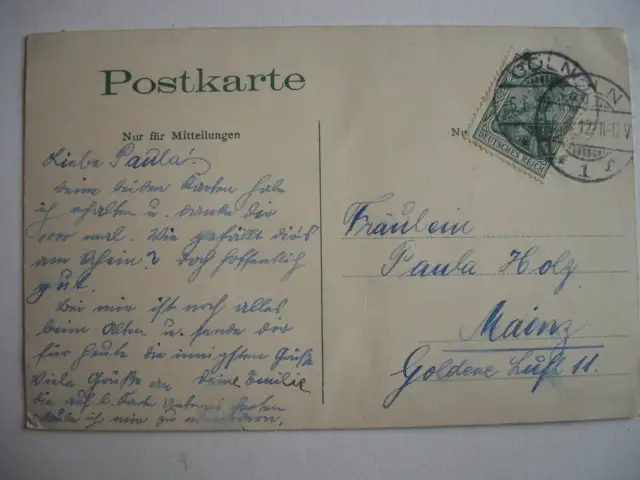 Postkarte
Nur für Mitteilungen
Nu
CÖLN
CÖLN
12 11-12 V
1 f
DEUTSCHES REICH
Liebe Paula!
Deine beiden Karten habe
ich erhalten u. danke dir
1000 mal. Wie gefällt dir's
am Rhein? Doch hoffentlich
gut.
Bei mir ist noch alles
beim Alten u. sende dir
für heute die innigsten Grüße
Viele Grüße an Deine Emilie
die auf l. Karte
ich mir zu
Fräulein
Paula Holz
Mainz
Goldene Luft 11.